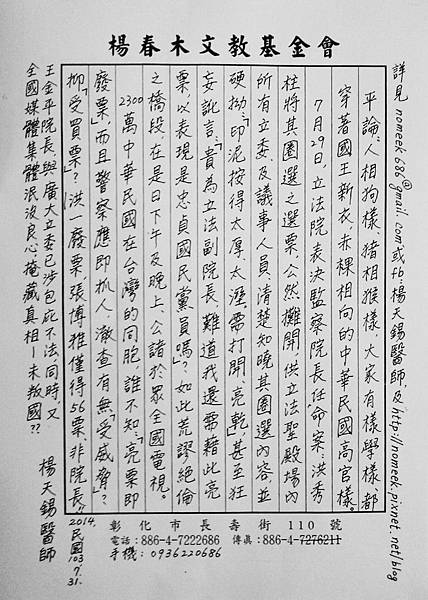 楊春木文教基金會
詳見 nomeek686@gmail.com或fb:楊天錫醫師,及http://nomeek.pixnet.net/blog
平論:人相狗樣、豬相猴樣,大家有樣學樣,都
穿著國王新衣,赤裸相向的中華民國高官樣。
7月29日,立法院表決監察院長任命案:洪秀
柱將其圈選之選票,公然攤開,供立法聖殿場內
所有立委、及議事人員,清楚知曉其圈選內容,並
硬拗:「印泥按得太厚、太溼,需打開亮乾」甚至狂
妄訛言:「貴為立法副院長,難道我還需藉此亮
票,以表現是忠貞國民黨員嗎?」如此荒謬絕倫
之橋段,在是日下午及晚上、公諸於眾全國電視。
2300萬中華民國在台灣的同胞,誰不知:「亮票即
廢票」,而且警察應即抓人,澈查有無「受威脅」?
抑「受買票」?洪一廢票,張博雅僅得56票、非院長。
王金平院長與廣大立委已涉包庇不法,同時,又
全國媒體集體泯沒良心掩藏真相-未叛國??
楊天錫醫師
2014.
民國
103
7.
31.
彰化市長壽街110號
電話:886-4-7222686 傳真:886-4-7276211
手機:0936220686